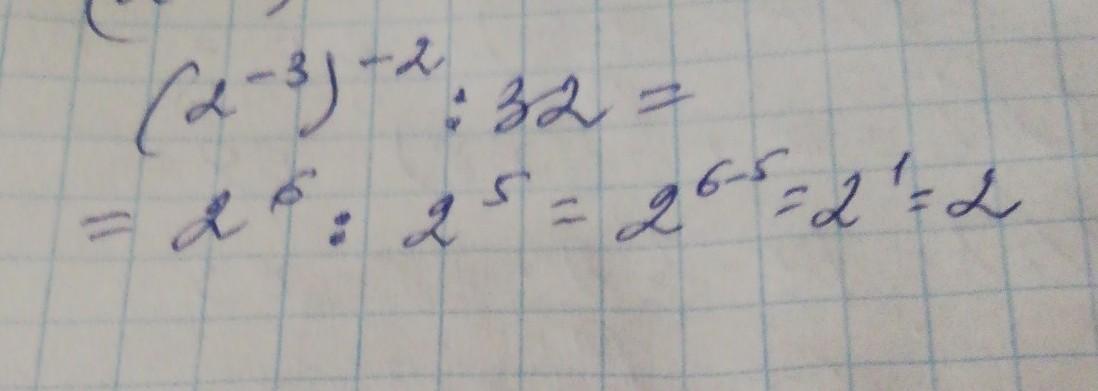 (2⁻³)⁻² : 32 =
= 2⁶ : 2⁵ = 2⁶⁻⁵ = 2¹ = 2